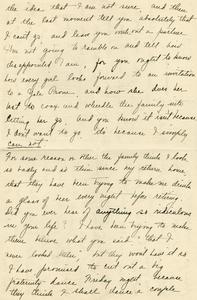 the idea that I am not sure and then
at the last moment tell you absolutely that
I can't go and leave you without a partner.
I'm not going to ramble on and tell how
disappointed I am, for you ought to know
how every girl looks forward to an invitation
to a Yale Prom, and how she does her
best to coax and wheedle the family into
letting her go. And you know it isn't because
I don't want to go do because I simply
can not.
For some reason or other the family think I look
so badly and so thin since my return home,
that they have been trying to make me drink
a glass of beer every night before retiring.
Did you ever hear of anything so ridiculous
in your life? I have been trying to make
them believe what you said, "that I
never looked better," but they won't have it so
I have promised to cut out a big
fraternity dance Friday night because
they think I shall dance a couple